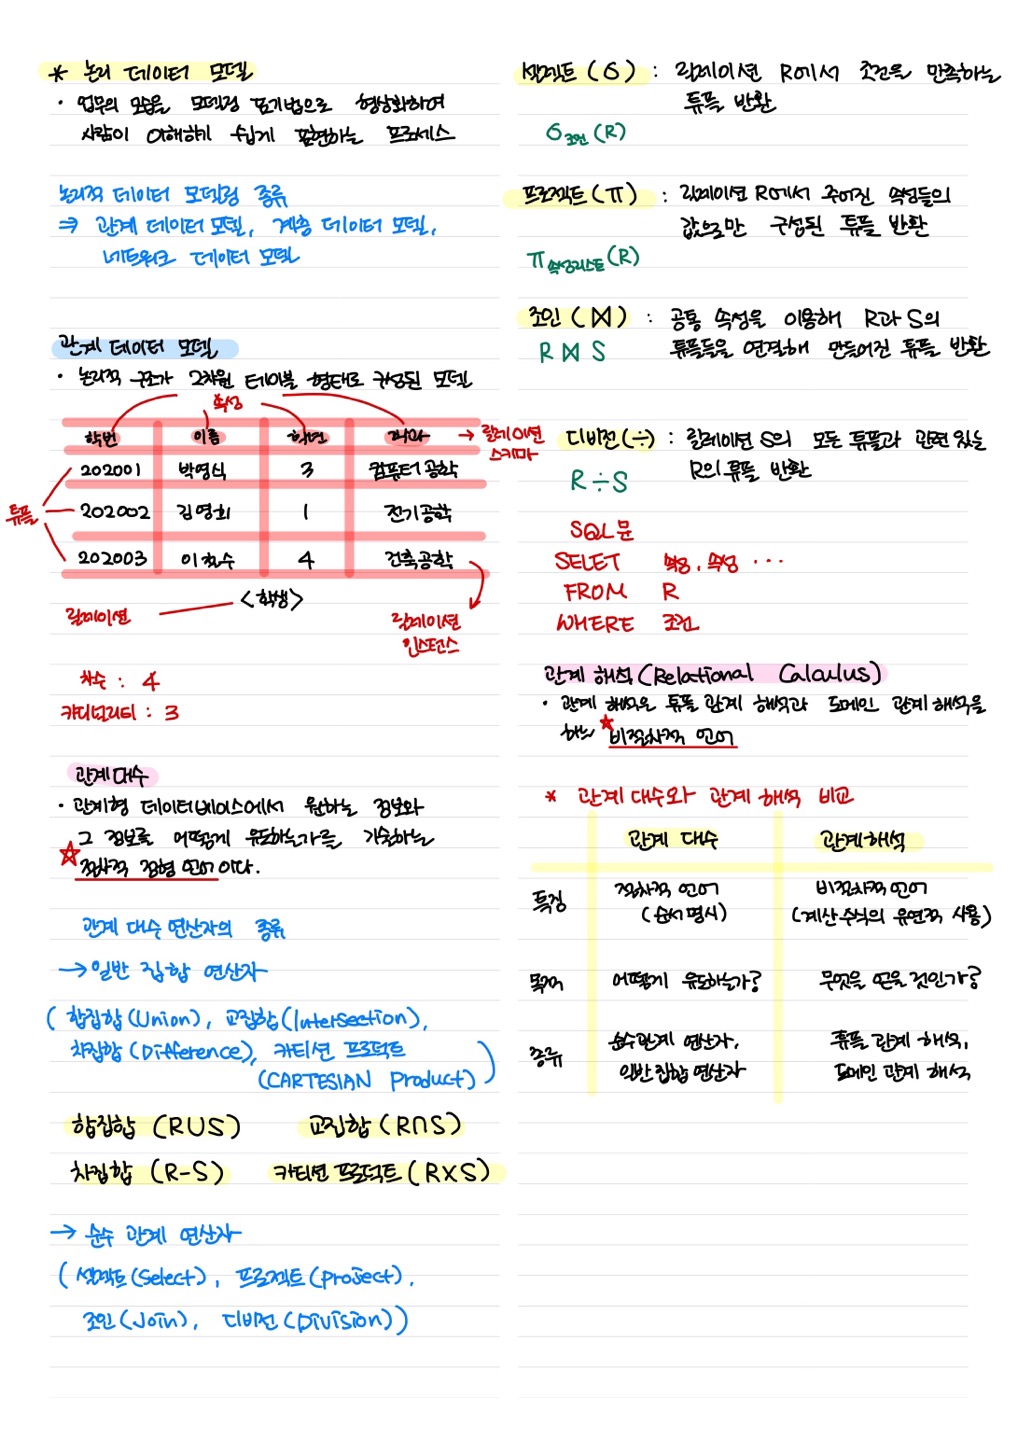 * 논리 데이터 모델
· 업무의 모습을 모델링 표기법으로 형상화하여
사람이 이해하기 쉽게 표현하는 프로세스
논리적 데이터 모델링 종류
⇒ 관계 데이터 모델, 계층 데이터 모델,
네트워크 데이터 모델
관계 데이터 모델
· 논리적 구조가 2차원 테이블 형태로 구성된 모델
속성
학번 이름 학년 학과 → 릴레이션
스키마
202001 박영식 3 컴퓨터 공학
튜플
202002 김영희 1 전기공학
202003 이철수 4 건축공학
<학생>
릴레이션
릴레이션
인스턴스
차수 : 4
카디널리티 : 3
관계대수
· 관계형 데이터베이스에서 원하는 정보와
그 정보를 어떻게 유도하는가를 기술하는
☆ 절차적 정형 언어이다.
관계 대수 연산자의 종류
→ 일반 집합 연산자
( 합집합(Union), 교집합(Intersection),
차집합(Difference), 카티션 프로덕트
(CARTESIAN Product) )
합집합 (R∪S) 교집합 (R∩S)
차집합 (R-S) 카티션 프로덕트 (R×S)
→ 순수 관계 연산자
( 셀렉트(Select), 프로젝트(Project),
조인(Join), 디비전(Division))
셀렉트 (σ) : 릴레이션 R에서 조건을 만족하는
튜플 반환
σ조건(R)
프로젝트(π) : 릴레이션 R에서 주어진 속성들의
값으로만 구성된 튜플 반환
π속성리스트(R)
조인 (⋈) : 공통 속성을 이용해 R과 S의
튜플들을 연결해 만들어진 튜플 반환
R ⋈ S
디비전(÷) : 릴레이션 S의 모든 튜플과 관련 있는
R의 튜플 반환
R ÷ S
SQL문
SELET 속성, 속성 ...
FROM R
WHERE 조건
관계 해석(Relational Calculus)
· 관계 해석은 튜플 관계 해석과 도메인 관계 해석을
하는 ☆ 비절차적 언어
* 관계 대수와 관계 해석 비교
관계 대수 관계해석
특징 절차적 언어 비절차적 언어
(순서 명시) (계산 수식의 유연적 사용)
목적 어떻게 유도하는가? 무엇을 얻을 것인가?
종류 순수관계 연산자, 튜플 관계 해석,
일반 집합 연산자 도메인 관계 해석